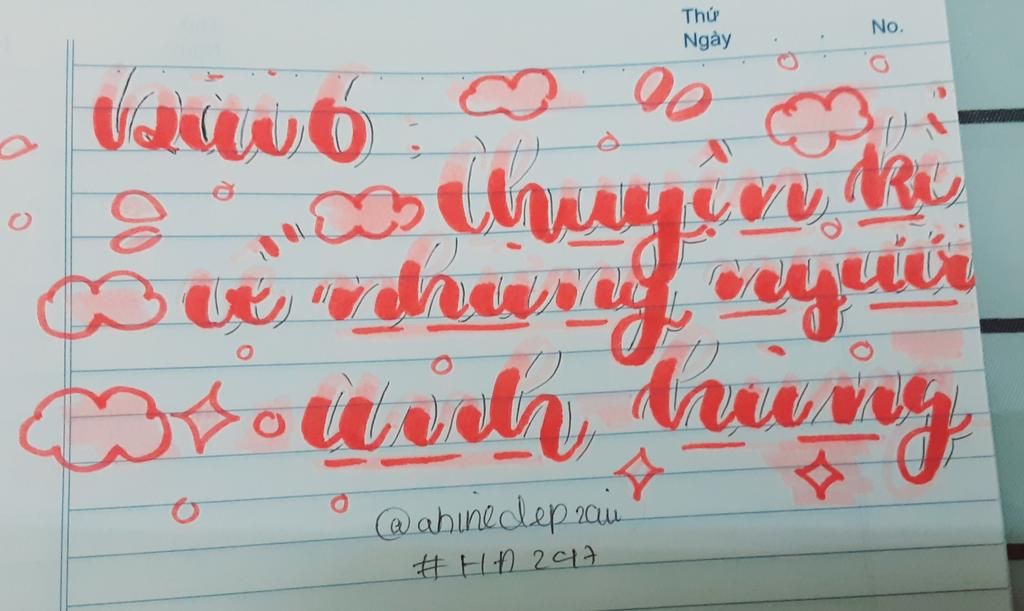 Thứ
Ngày
No.
Bài 6 :
Chuyện kể
về những người
anh hùng
@ahinedep2cui
#HA 2947